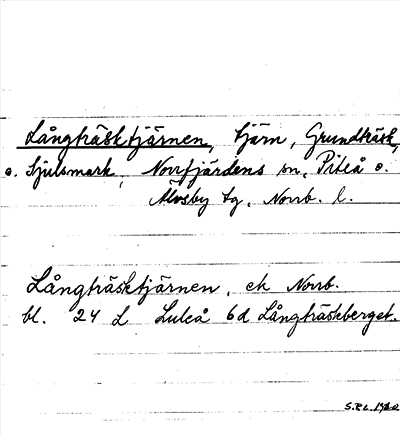 Långträsktjärnen, tjärn, Grundträsk,
o. Sjulsmark, Norrfjärdens sn, Piteå o.
Älvsby tg. Norrb. l.
Långträsktjärnen, ek Norrb.
bl. 24 L Luleå 6d Långträskberget.